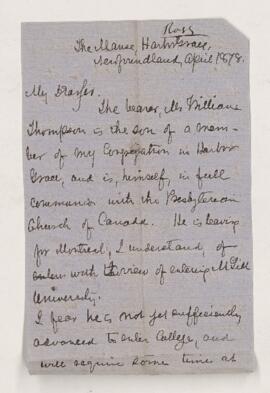 Ross
The Manse, Harbor Grace,
Newfoundland, April 1878.
My Dear Sir.
The bearer, Mr William
Thompson is the son of a mem-
ber of my Congregation in Harbor
Grace, and is, himself, in full
communion with the Presbyterian
Church of Canada. He is leaving
for Montreal, I understand,
with view of entering McGill
University.
I fear he is not yet sufficiently
advanced to enter College, and
will require some time at